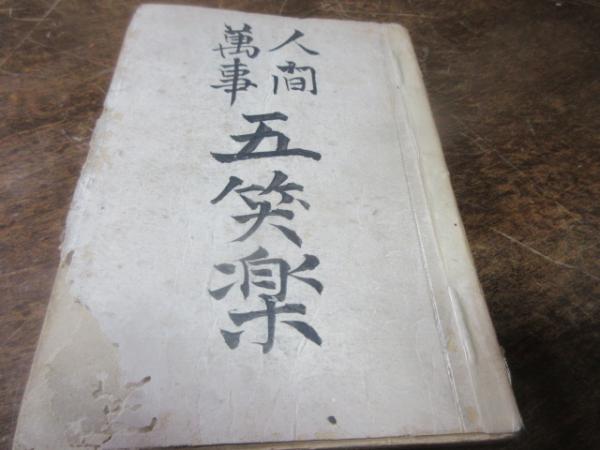 人間
萬事
五笑楽